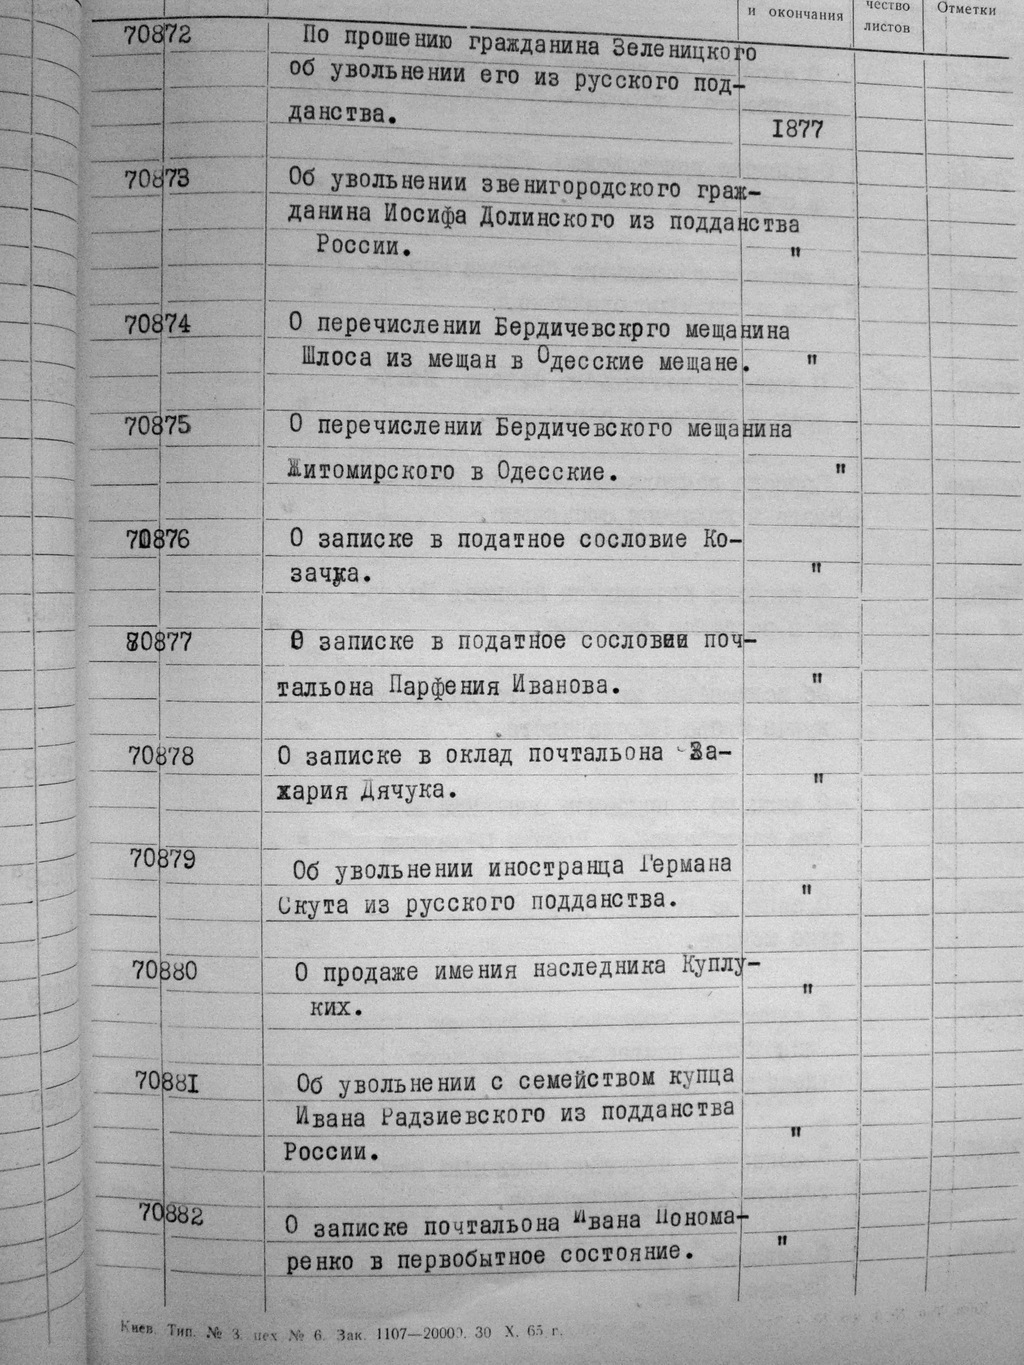 и окончания
чество
листов
Отметки
70872
По прошению гражданина Зеленицкого
об увольнении его из русского под-
данства.
1877
70873
Об увольнении звенигородского граж-
данина Иосифа Долинского из подданства
России.
"
70874
О перечислении Бердичевскрго мещанина
Шлоса из мещан в Одесские мещане.
"
70875
О перечислении Бердичевского мещанина
Житомирского в Одесские.
"
70876
О записке в податное сословие Ко-
зачука.
"
80877
О записке в податное сословии поч-
тальона Парфения Иванова.
"
70878
О записке в оклад почтальона За-
хария Дячука.
"
70879
Об увольнении иностранца Германа
Скута из русского подданства.
"
70880
О продаже имения наследника Куплу-
ких.
"
70881
Об увольнении с семейством купца
Ивана Радзиевского из подданства
России.
"
70882
О записке почтальона Ивана Понома-
ренко в первобытное состояние.
"
Киев. Тип. № 3. цех № 6. Зак. 1107—20000. 30 X. 65 г.